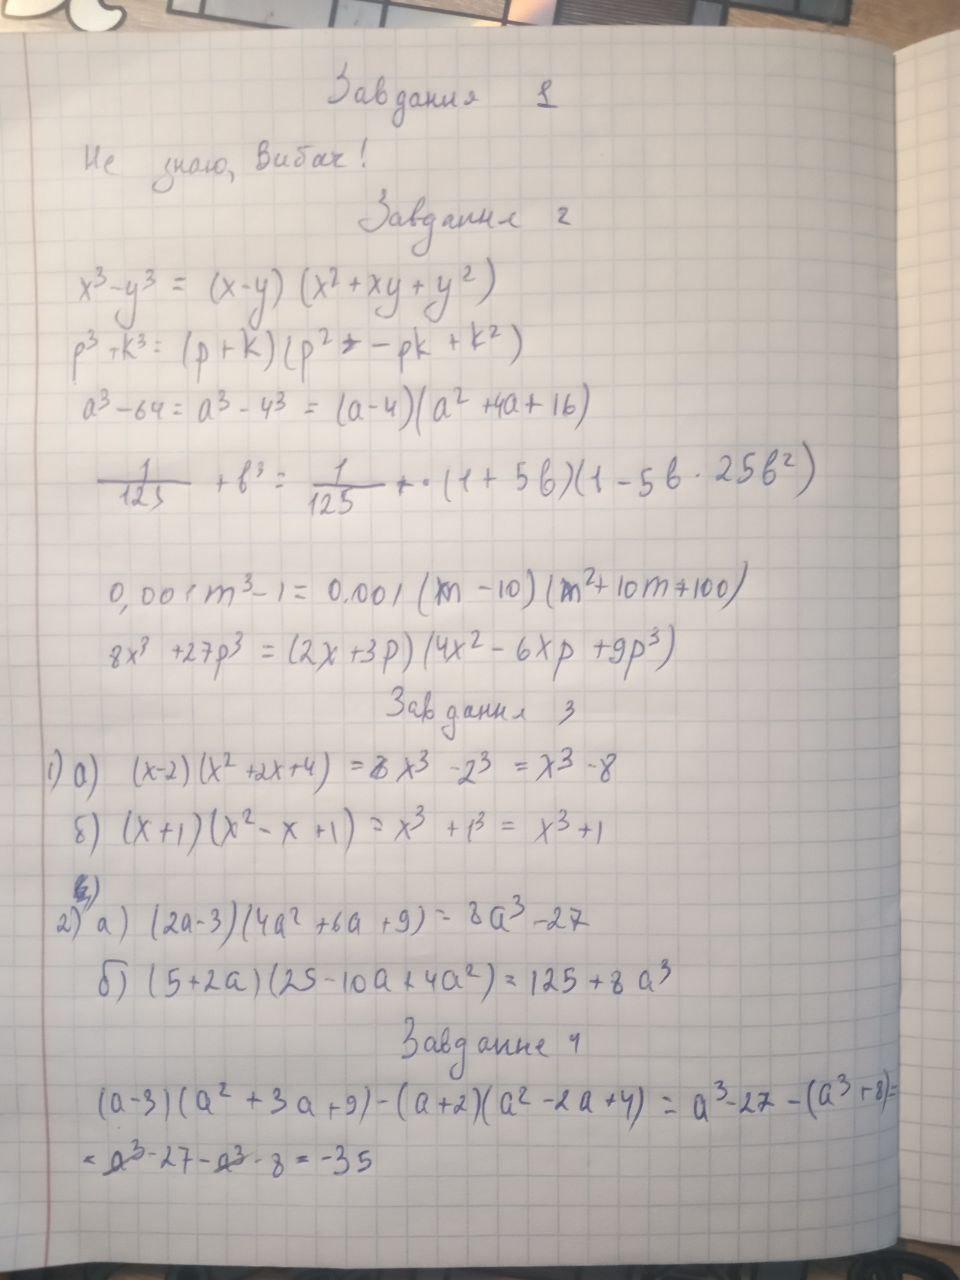 Завдання 1
Не знаю, Вибач!
Завдання 2
x³-y³ = (x-y) (x²+xy+y²)
p³+k³= (p+k)(p² - pk + k²)
a³-64= a³-4³ = (a-4)(a² +4a+16)
1/125 + b³= 1/125 · (1+5b)(1-5b · 25b²)
0,001m³-1= 0.001 (m -10) (m²+10m+100)
8x³ +27p³ = (2x+3p) (4x² - 6xp +9p³)
Завдання 3
1) а) (x-2)(x² +2x+4) = x³ -2³ = x³ -8
б) (x+1)(x² - x +1) = x³ +1³ = x³+1
2) а) (2a-3)(4a² +6a +9) = 8a³ -27
б) (5+2a)(25-10a+4a²) = 125+8a³
Завданне 4
(a-3)(a² + 3a +9) - (a+2)(a² -2a+4) = a³-27 -(a³ +8)=
= a³-27-a³-8 = -35